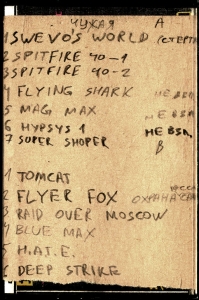 ЧУЖАЯ A
1 SWEVO'S WORLD (СТЕРТ
2 SPITFIRE 40-1
3 SPITFIRE 40-2
4 FLYING SHARK НЕ ВЗЯ.
5 MAG MAX НЕ ВЗЯ.
6 HYPSYS 1 НЕ ВЗЯ.
7 SUPER SHOPER B
1 TOMCAT
2 FLYER FOX
3 RAID OVER MOSCOW
4 BLUE MAX
5 H.A.T.E.
6 DEEP STRIKE